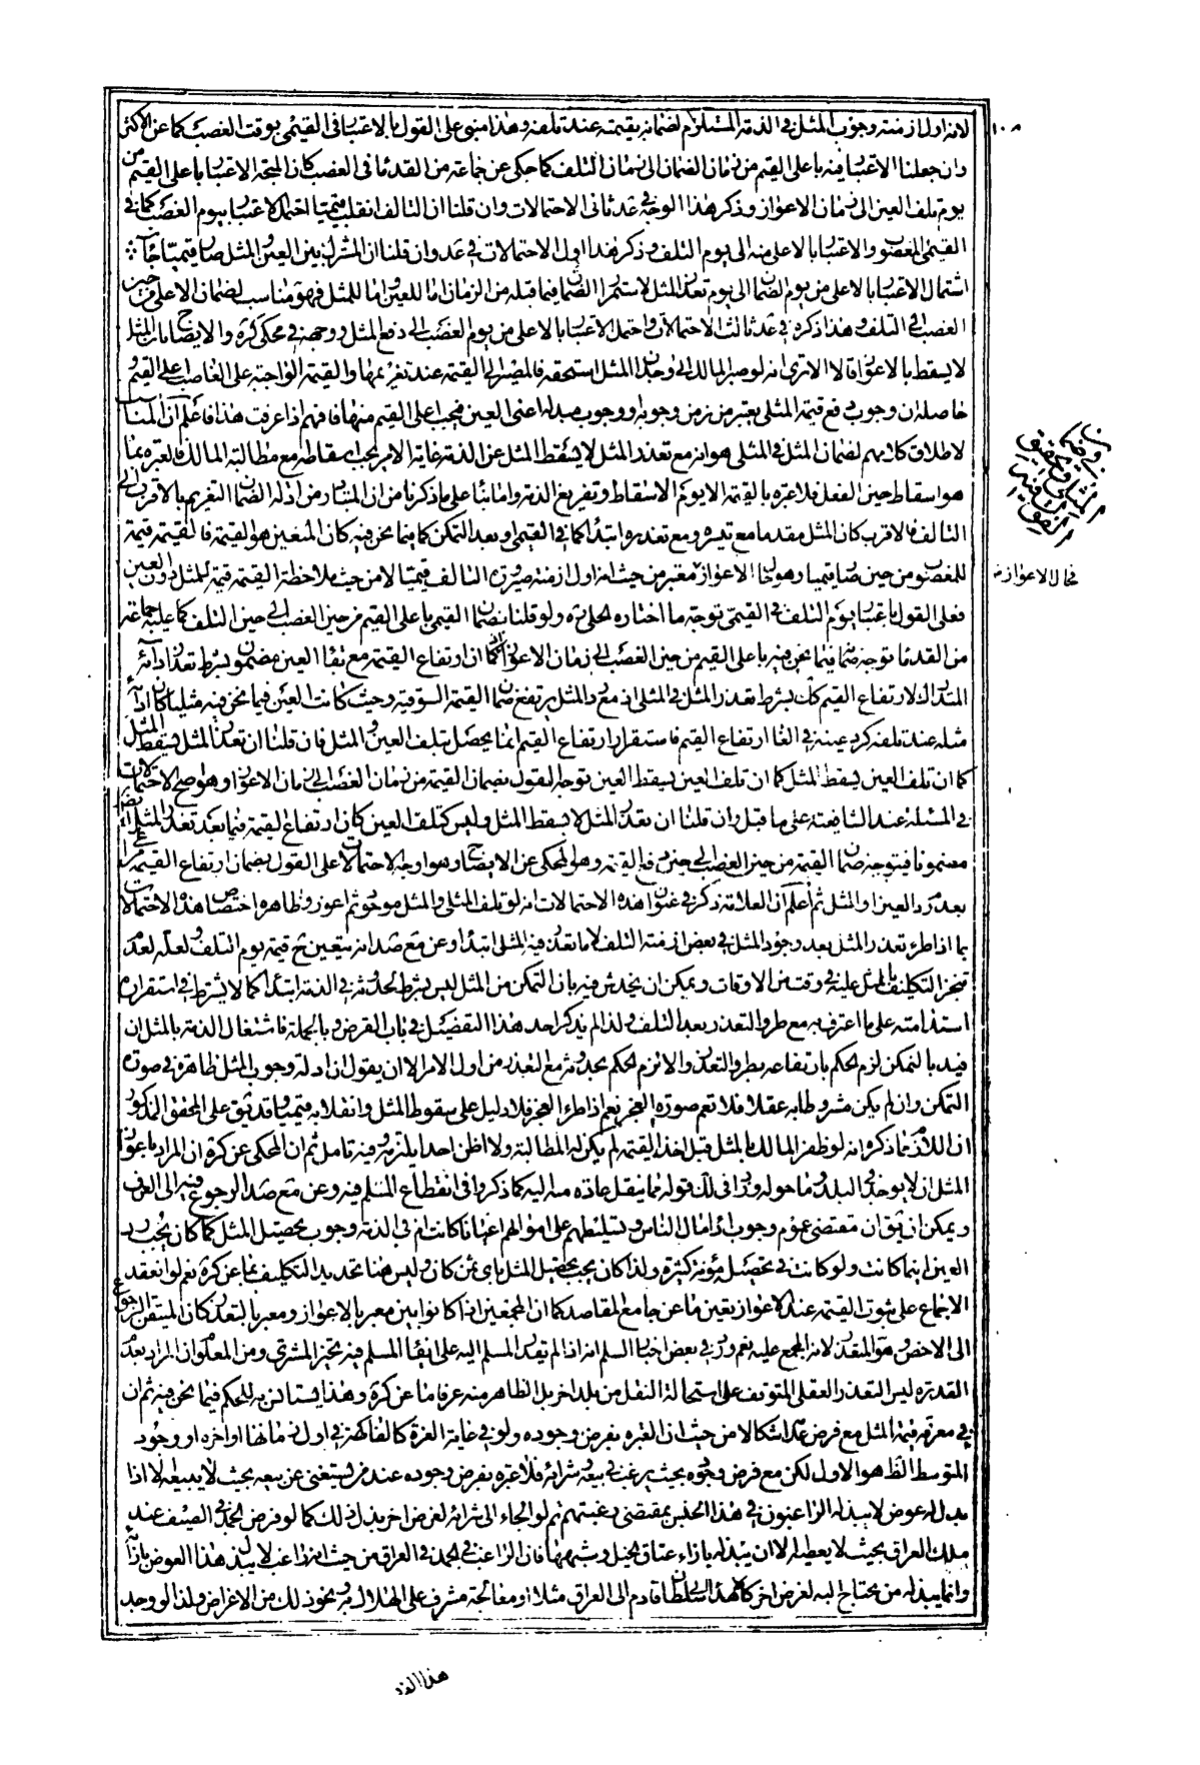 لانه اول ازمنته وجوب المثل في الذمة المستلزم لضمانه بقيمته عند تلفه وهذا مبنى على القول بالاعتبار في القيمى بوقت الغصب كما عن الاكثر
وان جعلنا الاعتبار فيه باعلى القيم من زمان الضمان الى زمان التلف كما حكى عن جماعة من القدماء في الغصب كان المتجه الاعتبار باعلى القيم من
يوم تلف العين الى زمان الاعواز وذكر هذا الوجه في عد ثانى الاحتمالات وان قلنا ان التالف انقلب قيميا احتمل الاعتبار بيوم الغصب كما في
القيمى المغصوب والاعتبار بالاعلى منه الى يوم التلف وذكر هذا اول الاحتمالات في عد وان قلنا ان المشترك بين العين والمثل صار قيميا جاء
احتمال الاعتبار بالاعلى من يوم الضمان الى يوم تعذر المثل لاستمرار الضمان فيما قبله من الزمان اما للعين واما للمثل فهو مناسب لضمان الاعلى من حين
الغصب الى التلف وهذا ذكره في عد ثالث الاحتمالات واحتمل الاعتبار بالاعلى من يوم الغصب الى دفع المثل ووجهه في محكى كرة والايضاح بان المثل
لا يسقط بالاعواز قالا الا ترى انه لو صبر المالك الى وجدان المثل استحقه فالمصير الى القيمة عند تغريمها والقيمة الواجبة على الغاصب اعلى القيم
حاصله ان وجوب دفع قيمة المثل يعتبر من زمن وجوبه او وجوب مبدله اعنى العين فيجب اعلى القيم منها فافهم اذا عرفت هذا فاعلم ان المناسب
لاطلاق كلامهم لضمان المثل في المثلى هو انه مع تعذر المثل لا يسقط المثل عن الذمة غاية الامر يجب اسقاطه مع مطالبة المالك فالعبرة بما
هو اسقاط حين الفعل فلا عبرة بالقيمة الا يوم الاسقاط وتفريغ الذمة واما بناء على ما ذكرنا من ان المتبادر من ادلة الضمان التغريم بالاقرب الى
التالف فالاقرب كان المثل مقدما مع تيسره ومع تعذره ابتداء كما في القيمى او بعد التمكن كما فيما نحن فيه كان المتعين هو القيمة فالقيمة قيمة
للمغصوب من حين صار قيميا وهو حال الاعواز فحال الاعواز معتبر من حيث انه اول ازمنة صيرورة التالف قيميا لا من حيث ملاحظة القيمة قيمة للمثل دون العين
فعلى القول باعتبار يوم التلف في القيمى توجه ما اختاره الحلى ره ولو قلنا بضمان القيمى باعلى القيم من حين الغصب الى حين التلف كما عليه جماعة
من القدماء توجه ضمانه فيما نحن فيه باعلى القيم من حين الغصب الى زمان الاعواز اذ كما ان ارتفاع القيمة مع بقاء العين مضمون بشرط تعذر ادائه
المتدارك لارتفاع القيم كك بشرط تعذر المثل في المثلى اذ مع رد المثل يرتفع ضمان القيمة السوقية وحيث كانت العين فيما نحن فيه مثليا كان اداء
مثله عند تلفه كرد عينه في الغاء ارتفاع القيم فاستقرار ارتفاع القيم انما يحصل بتلف العين والمثل فان قلنا ان تعذر المثل يسقط المثل
كما ان تلف العين يسقط العين توجه القول بضمان القيمة من زمان الغصب الى زمان الاعواز وهو اصح الاحتمالات
في المسئلة عند الشافعية على ما قيل وان قلنا ان تعذر المثل لا يسقط المثل وليس كتلف العين كان ارتفاع القيمة فيما بعد تعذر المثل ايضا
مضمونا فيتوجه ضمان القيمة من حين الغصب الى حين دفع القيمة وهو المحكى عن الايضاح وهو اوجه الاحتمالات على القول بضمان ارتفاع القيمة مراعى
بعدم رد العين او المثل ثم اعلم ان العلامة ذكر في عنوان هذه الاحتمالات انه لو تلف المثلى والمثل موجود ثم اعوز وظاهره اختصاص هذه الاحتمالات
بما اذا طرء تعذر المثل بعد وجود المثل في بعض ازمنة التلف لا ما تعذر فيه المثل ابتداء وعن مع صد انه يتعين ح قيمة يوم التلف ولعله لعدم
تنجز التكليف بالمثل عليه في وقت من الاوقات ويمكن ان يخدش فيه بان التمكن من المثل ليس بشرط لحدوثه في الذمة ابتداء كما لا يشترط في استقراره
استدامته على ما اعترف به مع طرو التعذر بعد التلف ولذا لم يذكر احد هذا التفصيل في باب القرض وبالجملة فاشتغال الذمة بالمثل ان
قيد بالتمكن لزم الحكم بارتفاعه بطرو التعذر والا لزم الحكم بحدوثه مع التعذر من اول الامر الا ان يقول ان ادلة وجوب المثل ظاهرة في صورة
التمكن وان لم يكن مشروطا به عقلا فلا تعم صورة العجز نعم اذا طرء العجز فلا دليل على سقوط المثل وانقلابه قيميا وقد يق على المحقق المذكور
ان اللازم مما ذكره انه لو ظفر المالك بالمثل قبل اخذ القيمة لم يكن له المطالبة ولا اظن احدا يلتزمه وفيه تامل ثم ان المحكى عن كرة ان المراد باعواز
المثل ان لا يوجد في البلد وما حوله وزاد في لك قوله مما ينقل عادة منه اليه كما ذكروا في انقطاع المسلم فيه وعن مع صد الرجوع فيه الى العرف
ويمكن ان يق ان مقتضى عموم وجوب اداء مال الناس وتسليطهم على اموالهم اعيانا كانت ام في الذمة وجوب تحصيل المثل كما كان يجب رد
العين اينما كانت ولو كانت في تحصيله مؤنة كثيرة ولذا كان يجب تحصيل المثل باى ثمن كان وليس هنا تحديد التكليف بما عن كرة نعم لو انعقد
الاجماع على ثبوت القيمة عند الاعواز تعين ما عن جامع المقاصد كما ان المجمعين اذا كانوا بين معبر بالاعواز ومعبر بالتعذر كان المتيقن الرجوع
الى الاخص وهو المتعذر لانه المجمع عليه نعم ورد في بعض اخبار السلم انه اذا لم يقدر المسلم اليه على ايفاء المسلم فيه تخير المشترى ومن المعلوم ان المراد بعدم
القدرة ليس التعذر العقلى المتوقف على استحالة النقل من بلد اخر بل الظاهر منه عرفا ما عن كرة وهذا يستانس به للحكم فيما نحن فيه ثم ان
في معرفة قيمة المثل مع فرض عدمه اشكالا من حيث ان العبرة بفرض وجوده ولو في غاية العزة كالفاكهة في اول زمانها او اخره او وجود
المتوسط الظ هو الاول لكن مع فرض وجوده بحيث يرغب في بيعه وشرائه فلا عبرة بفرض وجوده عند من يستغنى عن بيعه بحيث لا يبيعه الا اذا
بذل له عوض لا يبذله الراغبون في هذا الجنس بمقتضى رغبتهم نعم لو الجاء الى شرائه لغرض اخر بذل ذلك كما لو فرض الجمد في الصيف عند
ملك العراق بحيث لا يعطيه الا ان يبذله بازاء عتاق الخيل وشبهها فان الراغب في الجمد في العراق من حيث انه راغب لا يبذل هذا العوض بازائه
وانما يبذله من يحتاج اليه لغرض اخر كالاهداء الى سلطان قادم الى العراق مثلا او معالجة مشرف على الهلاك به ونحو ذلك من الاغراض ولذا لو وجد
هذا الفرد
١٠٨
فحال الاعواز